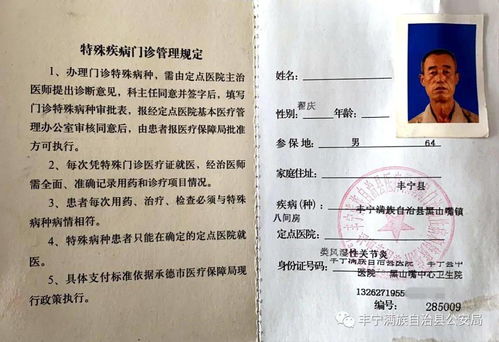 特殊疾病门诊管理规定
1、办理门诊特殊病种，需由定点医院主治
医师提出诊断意见，科主任同意并签字后，填写
门诊特殊病种审批表，报经定点医院基本医疗管
理办公室审核同意后，由患者报医疗保障局批准
方可执行。
2、每次凭特殊门诊医疗证就医，经治医师
需全面、准确记录用药和诊疗项目情况。
3、患者每次用药、治疗、检查必须与特殊
病种病情相符。
4、特殊病种患者只能在确定的定点医院就
医。
5、具体支付标准依据承德市医疗保障局现
行政策执行。
姓名：
翟庆
性别： 年龄：
男 64
参保地：
家庭住址：
丰宁县
疾病(种)：丰宁满族自治县黑山嘴镇
八间房
定点医院：
类风湿性关节炎
身份证号码：丰宁满族自治县医院
医院 黑山嘴中心卫生院
1326271955
编号： 285009
丰宁满族自治县公安局